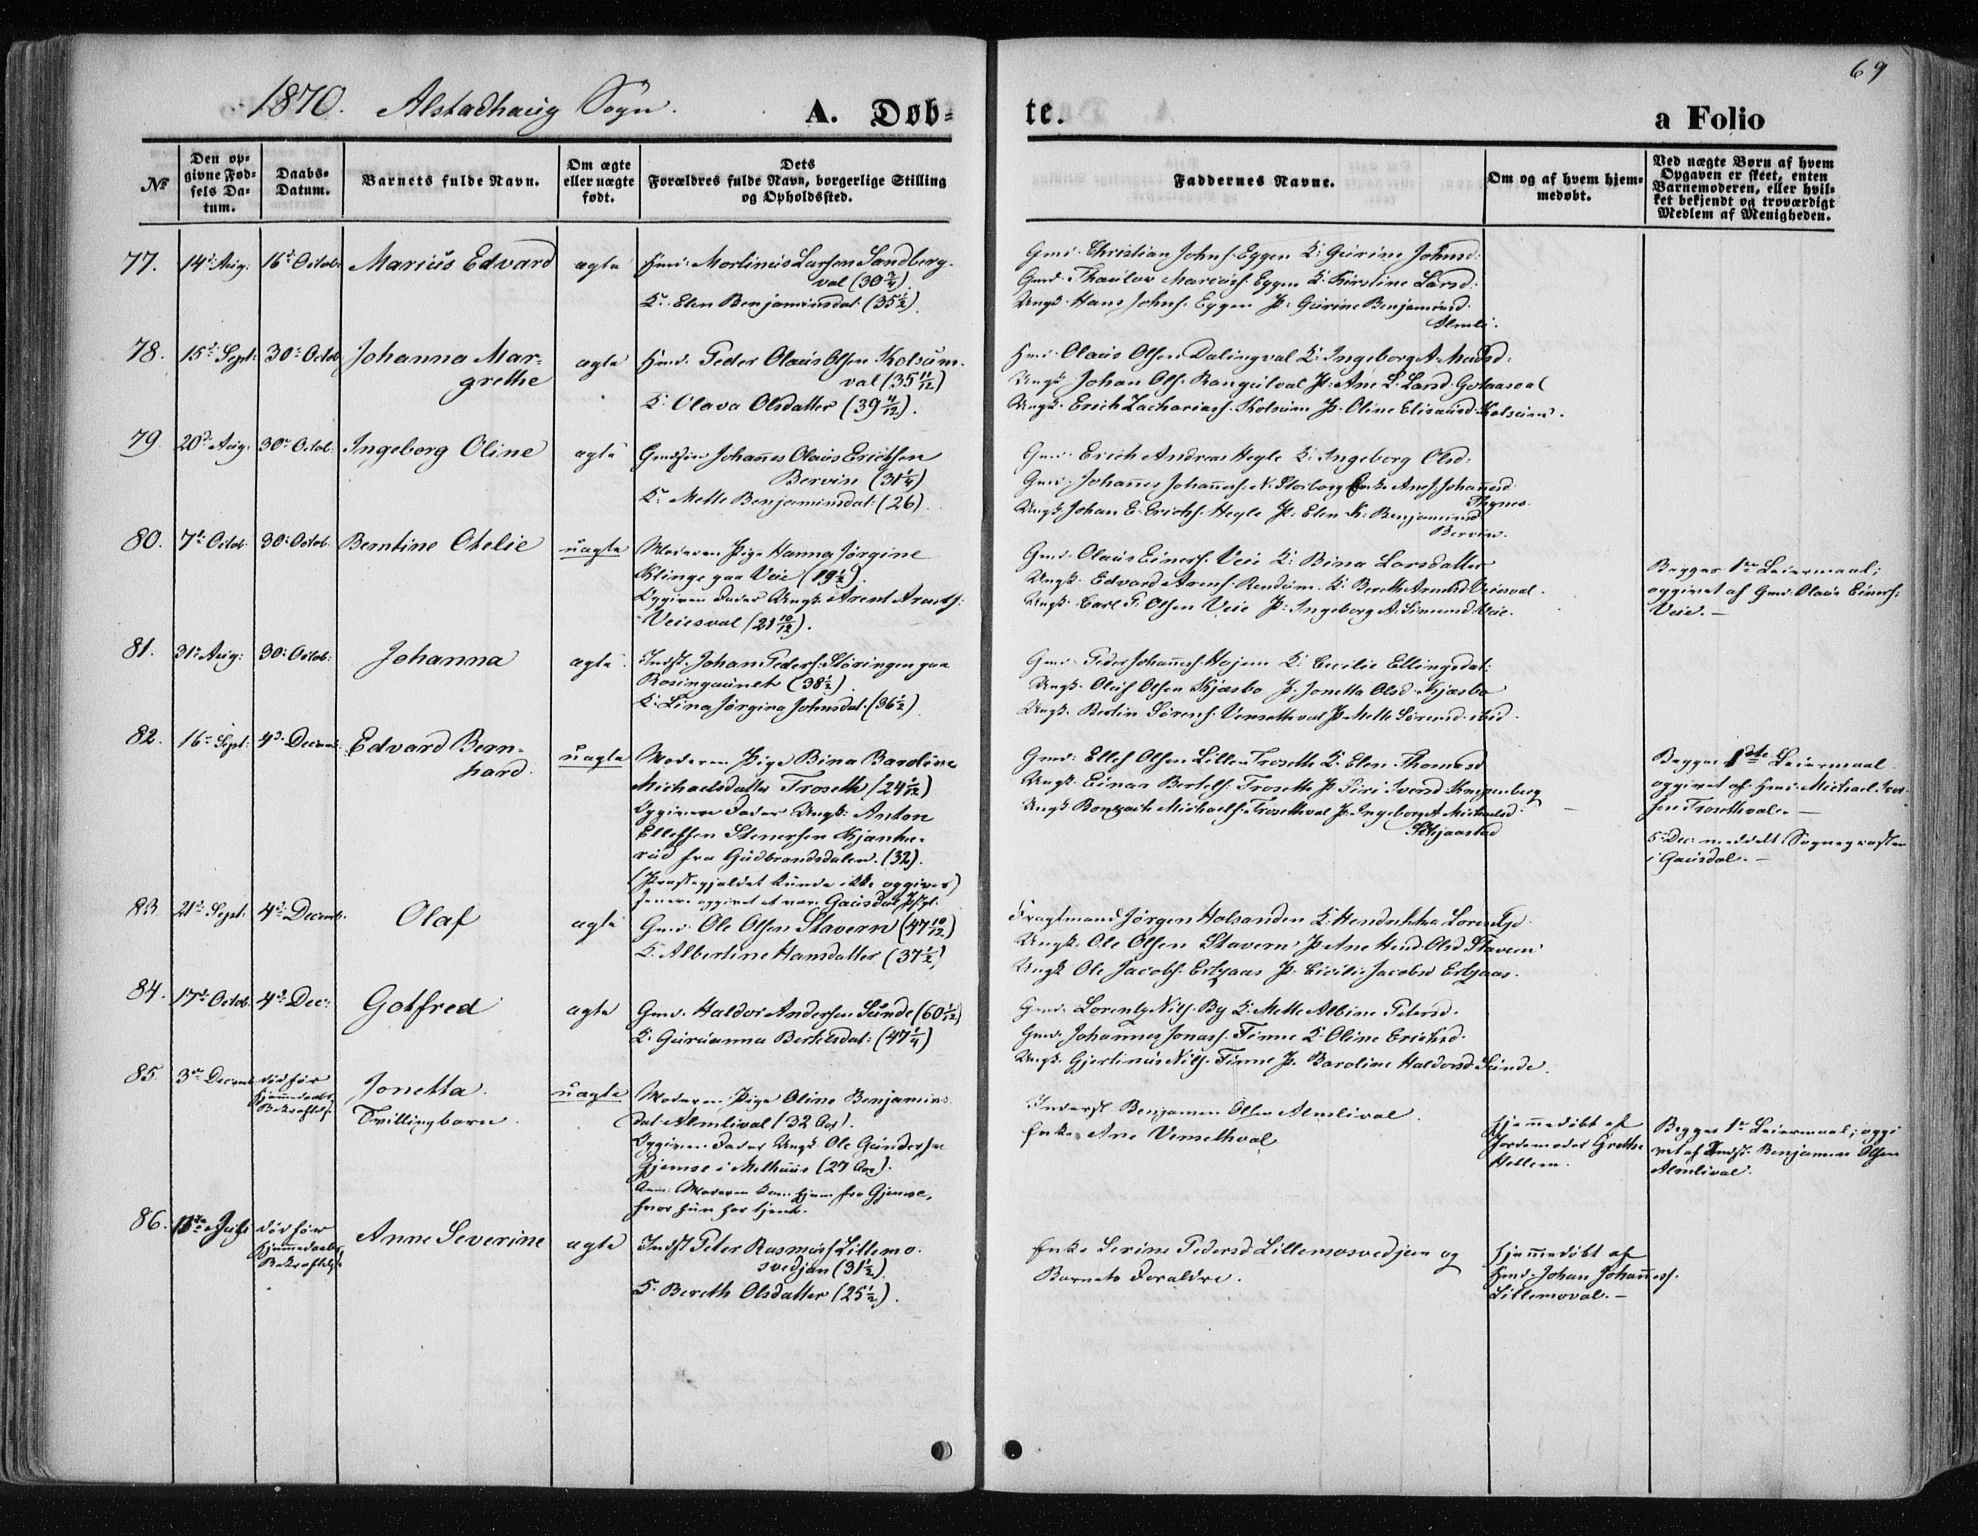 69
1870. Alstadhaug Sogn. A. Døb-
te. a Folio
No
Den op-
givne Fød-
sels Da-
tum.
Daabs-
Datum.
Barnets fulde Navn.
Om ægte
eller uægte
født.
Dets
Forældres fulde Navn, borgerlige Stilling
og Opholdssted.
Faddernes Navne.
Om og af hvem hjem-
medøbt.
Ved uægte Børn af hvem
Opgaven er skeet, enten
Barnemoderen, eller hvil-
ket bekjendt og troværdigt
Medlem af Menigheden.
77. 14de Aug: 16de Octob: Marius Edvard ægte Hmd: Mortinus Larsen Sandberg-
val (30 3/4).
K: Elen Benjaminsdat: (35 1/2).
Gmd: Christian Johns. Eggen K: Gurine Johnsd:
Gmd: Thaulov Mariusf. Eggen K: Kirstine Larsd:
Ungk: Hans Johns. Eggen P: Gurine Benjaminsd:
Almli.
78. 15de Sept: 30te Octob Johanna Mar-
grethe
ægte Hmd: Peder Olaus Olsen Kolsum-
val (35 11/12)
K: Olava Olsdatter (39 4/12).
Hmd: Olaus Olsen Dalingval K: Ingeborg A. Madsd:
Ungk: Johan Ols. Rangulval P: Ane L. Larsd:
Ungk: Erich Zachariasf. Kolsum P: Oline Elisæusd: Kolsum.
79. 20de Aug: 30te Octob: Ingeborg Oline ægte Gmdsøn Johannes Olaus Erichsen
Bervin (31 1/4)
K: Mette Benjaminsdat: (26).
Gmd: Erich Andreas Hegle K: Ingeborg Olsd:
Gmd: Johannes Johannesf. N. Storborg Enke Ane J. Johannesd:
Thynes.
Ungk: Johan E. Erichs. Hegle P: Elen K. Benjaminsd:
Bervin.
80. 7de Octob 30te Octob: Berntine Otelie uægte Moderen: Pige Hanna Jørgine
Klinge paa Veie (19 1/2).
Opgiven Fader: Ungk: Arent Arents:
Veiesval (21 10/12).
Gmd: Olaus Einersf. Veie K: Bina Larsdatter
Ungk: Edvard Arens. Rendum. K: Bereth Arntsd: Veiesval.
Ungk: Carl P. Olsen Veie P: Ingeborg A. Simonsd: Veie.
Begges 1ste Leiermaal;
opgivet af Gmd: Olaus Einersf:
Veie. –
81. 31te Aug: 30te Octob: Johanna ægte Indst: Johan Peders. Støringen paa
Rosingaunet (38 1/2).
K: Lina Jørgina Johnsdat: (36 1/2)
Gmd: Peder Johannesf. Hojem K: Cecilie Ellingsdat:
Ungk: Oluf Olsen Kjæsbo P: Jonetta Olsd: Kjæsbo
Ungk: Berlin Sørens. Vensethval P: Mette Sørensd: ibid.
82. 16de Sept: 4de Decemb: Edvard Bern-
hard.
uægte Moderen: Pige Bina Baroline
Michaelsdatter Troseth (24 1/12)
Opgiven Fader: Ungk: Anton
Ellefsen Stenersen Kjanhe-
rud fra Gudbrandsdalen. (32).
(Præstegjeldet kunde ikke opgives)
senere opgivet at være Gausdal Pgl.
Gmd: Ellef Olsen Lille Troseth K: Elen Thomasd
Ungk: Einar Bertels. Troseth P: Siri Iversd:
Ungk: Michaels. Trosethval P: Ingeborg A. Michaelsd:
Skjaastad
Begges 1ste Leiermaal.
opgivet af Hmd: Michael Iver-
sen Trosethval. –
5te Dec: meddelt Sognepræsten
i Gausdal. –
83. 21de Sept: 4de Decemb. Olaf ægte Gmd: Ole Olsen Stavern (47 10/12)
K: Albertine Hansdatter (37 1/2)
Fragtmand Jørgen Holsanden K: Hendrikka Lorentsd:
Ungk: Ole Olsen Stavern P: Ane Hend: Olsd: Stavern
Ungk: Ole Jacobs. Ertsaas P: Cicilie Jacobsd: Ertsaas.
84. 17de Octob: 4de Dec: Gotfred ægte Gmd: Haldor Andersen Sunde (60 1/12)
K: Guruanna Bertelsdat: (47 1/4)
Gmd: Lorents Nils. By K: Mette Albine Petersd:
Gmd: Johannes Jonasf. Finne K: Oline Erichsd.
Ungk: Gjertinus Nils. Finne P: Baroline Haldorsd: Sunde.
85. 3die Decemb: død før
Hjemmedaabs
Bekræftelse
Jonetta.
Tvillingbarn.
uægte Moderen: Pige Oline Benjamins-
dat: Almlival (32 Aar).
Opgiven Fader: Ungk: Ole Gundersen
Gjemse i Melhuus (27 Aar).
Anm: Moderen kom hjem fra Gjemse,
hvor hun har tjent.
Inderst Benjamin Olsen Almlival.
Enke Ane Vensethval
Hjemmedøbt af
Jordemoder Grethe
Hellem.
Begges 1ste Leiermaal; opgi-
vet af Indst: Benjamin Olsen
Almlival.
86. Juli død før
Hjemmedaabs
Bekræftelse
Anne Severine ægte Indst: Peter Rasmusf. Lillemo-
svedjan (31 1/2).
K: Bereth Olsdatter (25 1/2).
Enke Serine Pedersd: Lillemosvedjen og
Barnets Forældre.
Hjemmedøbt af
Hmd: Johan Johannesf.
Lillemoval. –